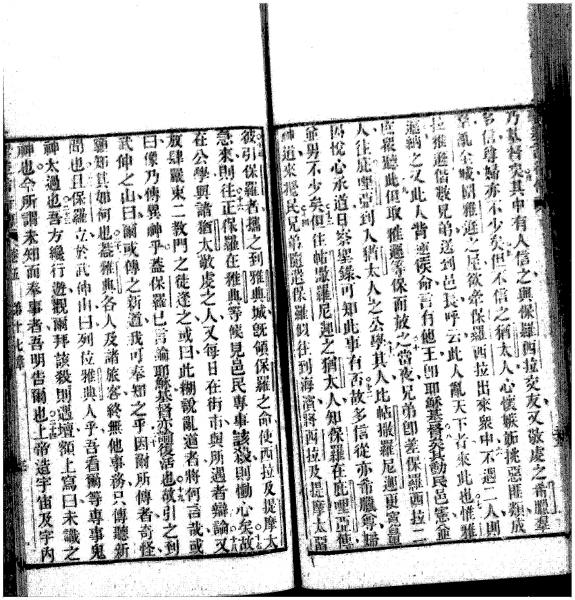 乃基督矣其中有人信之與保羅西拉交友又敬虔之希臘羣
多信尊婦亦不少矣但不信之猶太人心懷嫉妬挑惡匪類成
羣亂全城圍雅遜之屋欲牽保羅西拉出來衆中不遇二人則
拉雅遜偕數兄弟送到邑長呼云此人亂天下者來此也惟雅
遜納之又此人皆逆候命言有他王卽耶穌基督矣其勸民邑憲並
庶聽此但取雅遜等保而放之當夜兄弟卽差保羅西拉二
人往庇哩亞到入猶太人之公學其人比帖撒羅尼迦更寬量
因悅心承道日察聖錄可知此事有否故多信從亦希臘尊婦
並男不少矣但往帖撒羅尼迦之猶太人知保羅在庇哩亞傳
神道來搖民兄弟隨遣保羅似往到海濱將西拉及提摩太留
彼引保羅者攜之到雅典城旣領保羅之命使西拉及提摩太
急來則往正保羅在雅典等候見邑民專事該殺則慟心矣故
在公學與諸猶太敬虔之人又每日在街市與所遇者辯論又
放肆嚴東二教門之徒逢之或曰此糊說亂道者將何言哉或
曰像乃傳異神乎蓋保羅已言論耶穌基督亦復活也故引之到
武仲之山曰爾或傳之新道我可奉知之乎因爾所傳者奇怪
知其如何也蓋雅典各人及諸旅客終無他事務只傳聽新
聞也且保羅立於武仲山曰列位雅典人乎吾看爾等專事鬼
神太過也吾方纔行遊觀爾拜該殺則遇壇額上寫曰未識之
神也今所謂未知而奉事者吾明告爾也上帝造宇宙及宇內
卷五 第十七章